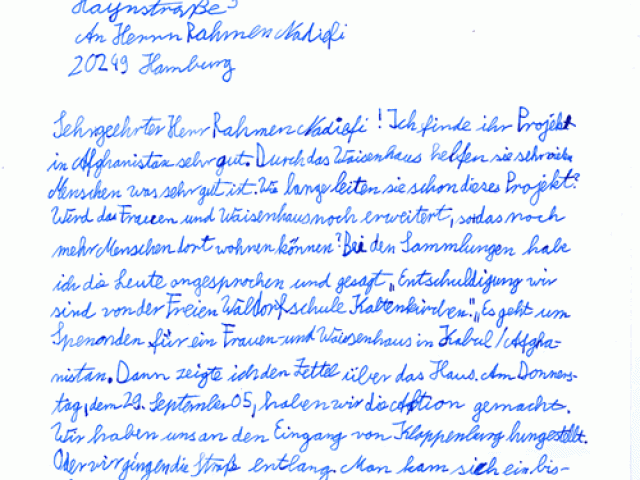 Haynstraße 3
An Herrn Rahmen Nadiefi
20249 Hamburg
Sehrgeehrter Herr Rahmen Nadiefi! Ich finde ihr Projekt
in Afghanistan sehr gut. Durch das Waisenhaus helfen sie sehr vielen
Menschen was sehr gut ist. Wie lange leiten sie schon dieses Projekt?
Wird das Frauen und Waisenhaus noch erweitert, sodas noch
mehr Menschen dort wohnen können? Bei den Sammlungen habe
ich die Leute angesprochen und gesagt „Entschuldigung wir
sind von der Freien Waldorfschule Kaltenkirchen". „Es geht um
Spenonden für ein Frauen- und Waisenhaus in Kabul/Afgha-
nistan. Dann zeigte ich den Zettel über das Haus. Am Donners-
tag, dem 29. September 05, haben wir die Aktion gemacht.
Wir haben uns an den Eingang von Kloppenburg hingestellt.
Oder wir gingen die Straße entlang. Man kam sich ein bis-